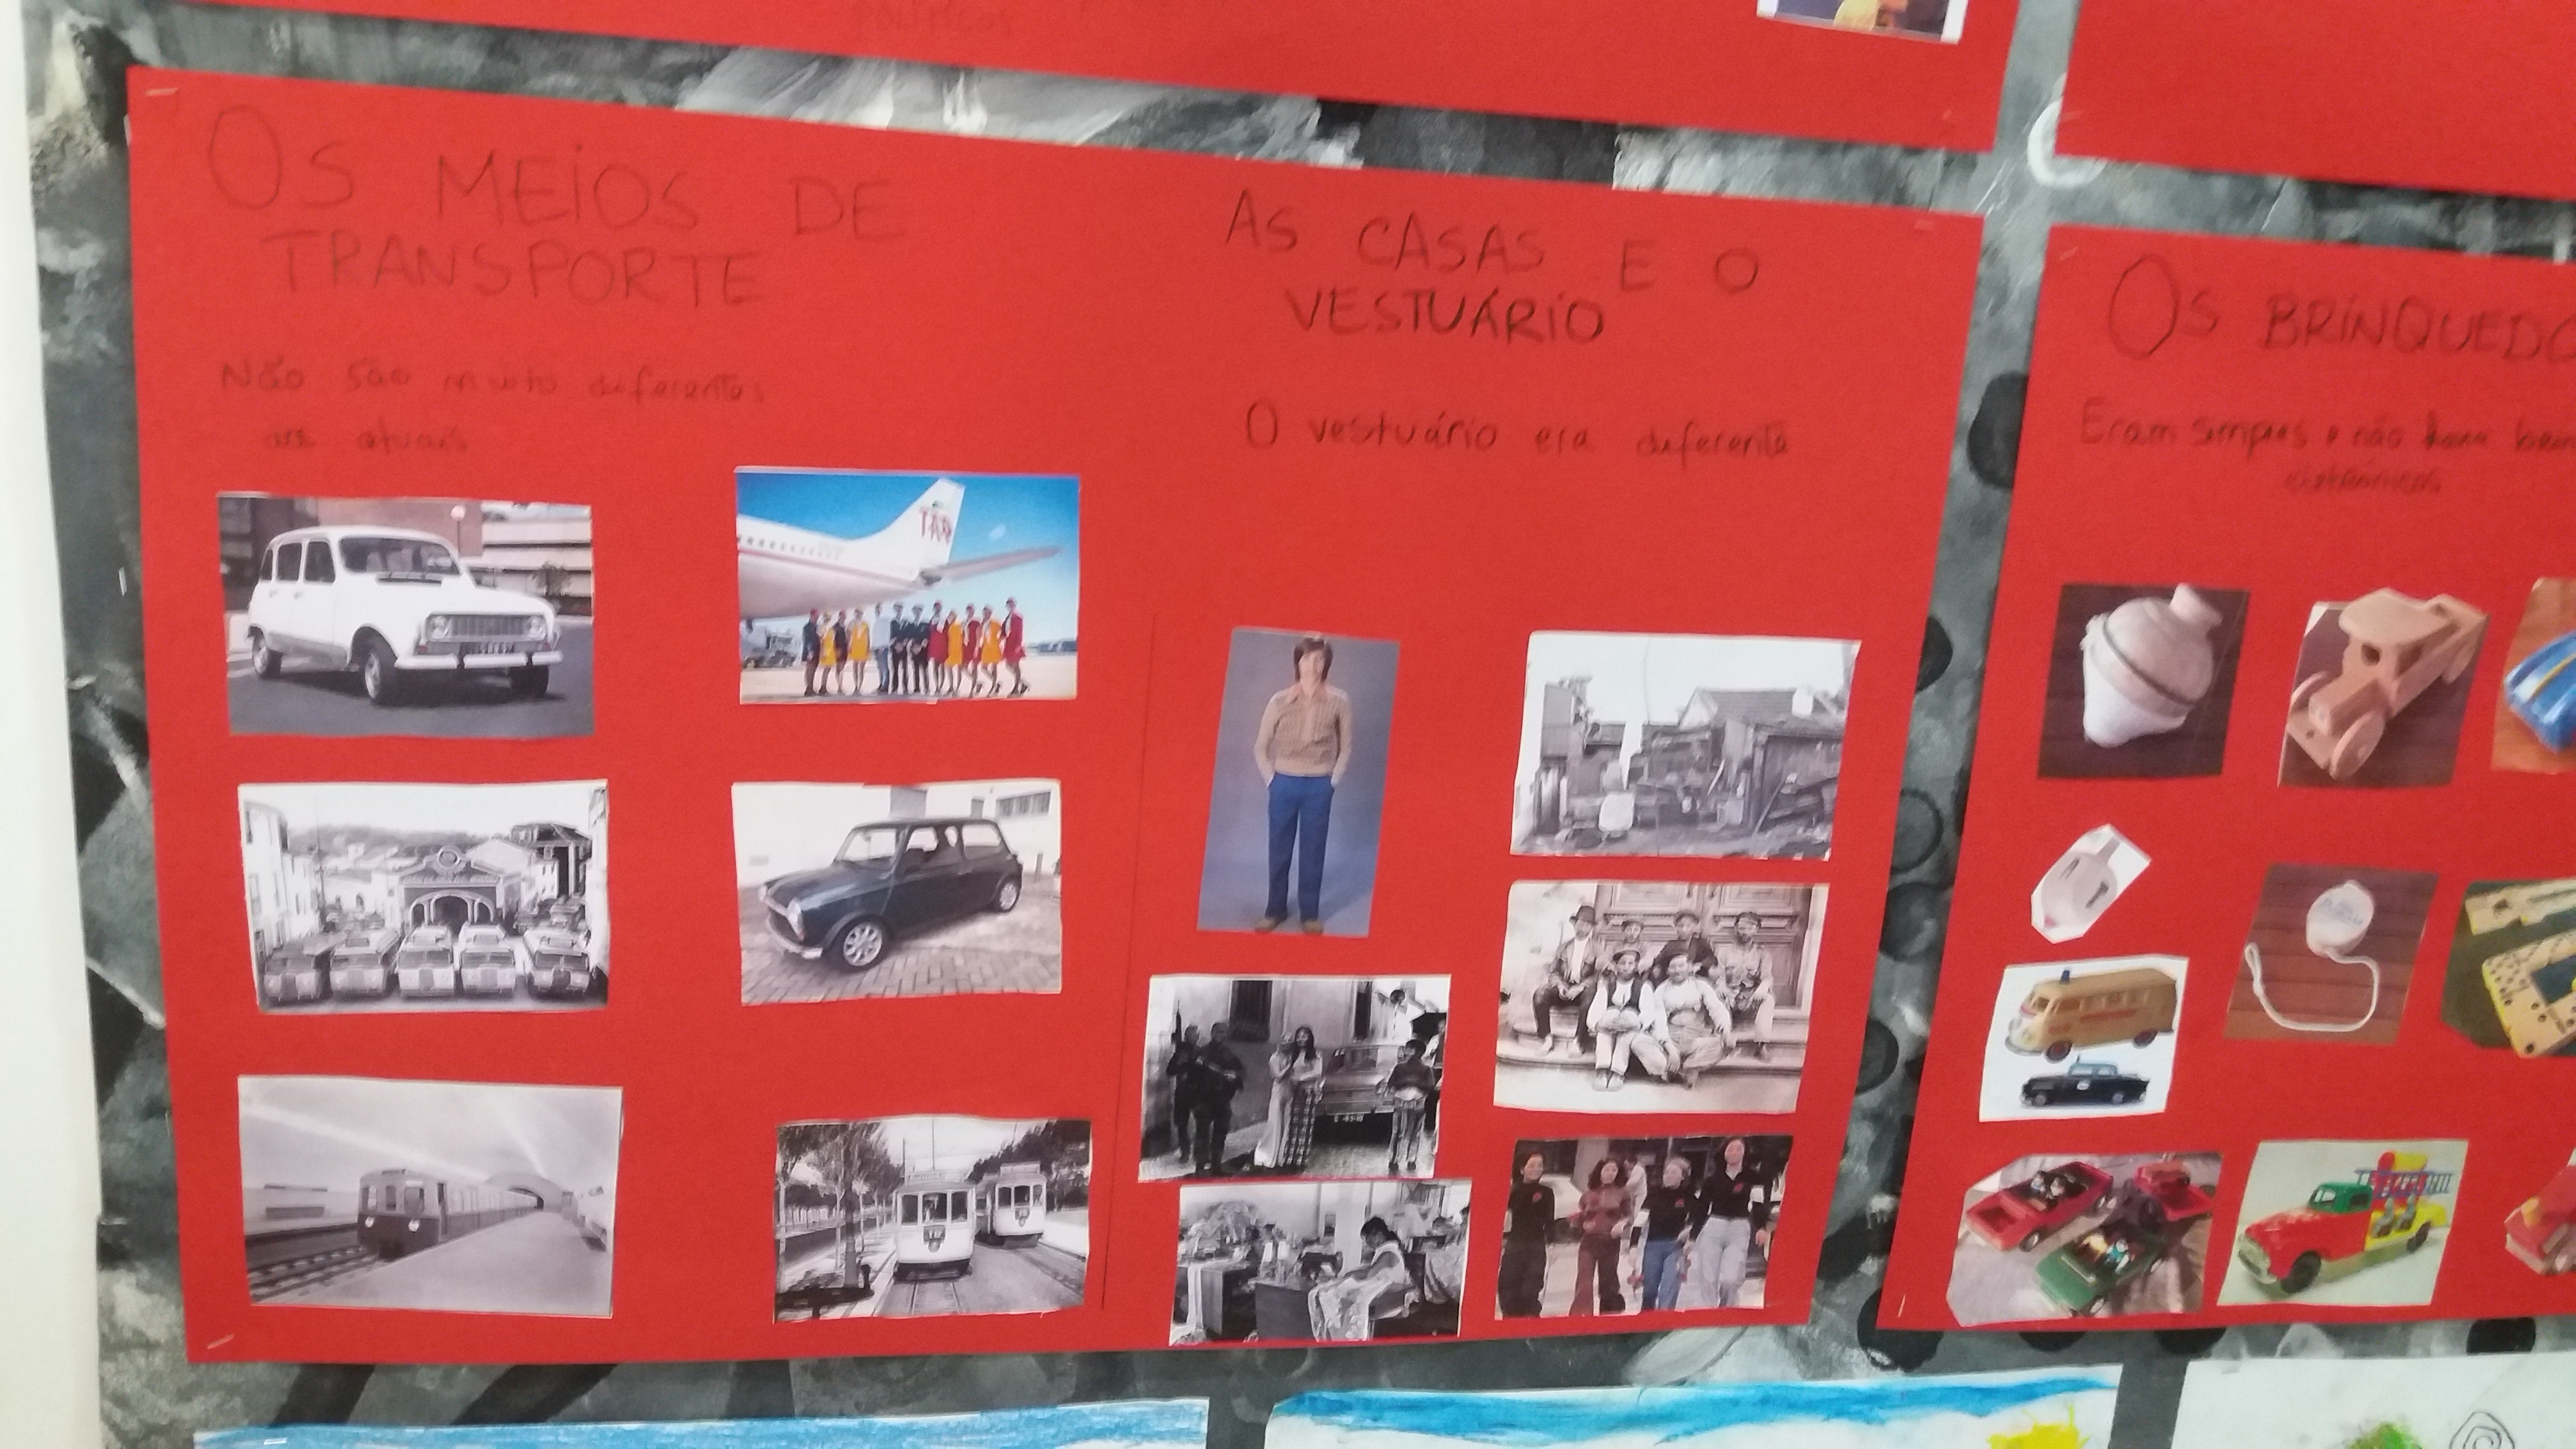 POLÍTICOS
OS MEIOS DE
TRANSPORTE
Não são muito diferentes
atuais
TAP
AS CASAS E O
VESTUÁRIO
O vestuário era diferente
OS BRINQUEDO
Eram simples e não
eletrónicos